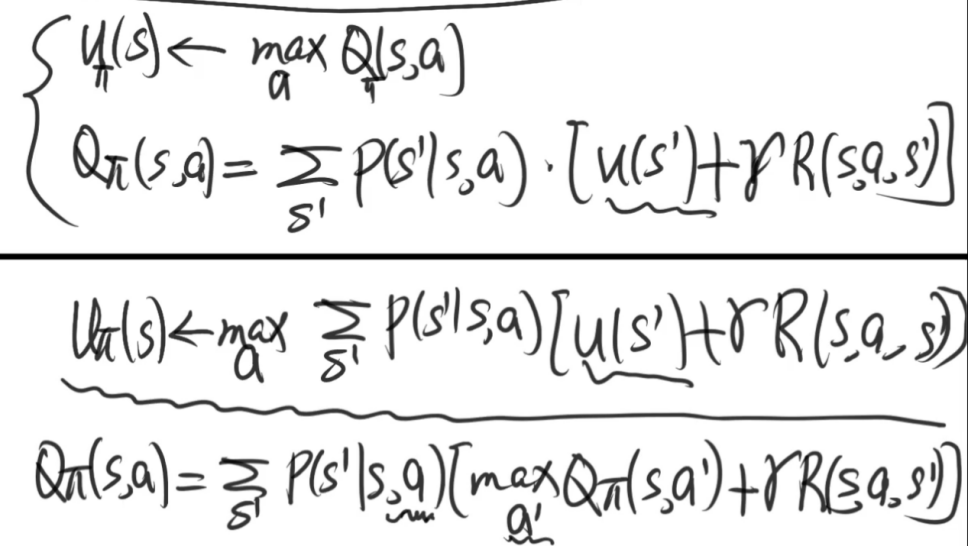 U_π(s) ← max_a Q_π(s,a)
Q_π(s,a) = Σ_s' P(s'|s,a) · [u(s') + γ R(s,a,s')]
U_π(s) ← max_a Σ_s' P(s'|s,a) [u(s') + γ R(s,a,s'))
Q_π(s,a) = Σ_s' P(s'|s,a) [max_a' Q_π(s,a') + γ R(s,a,s')]